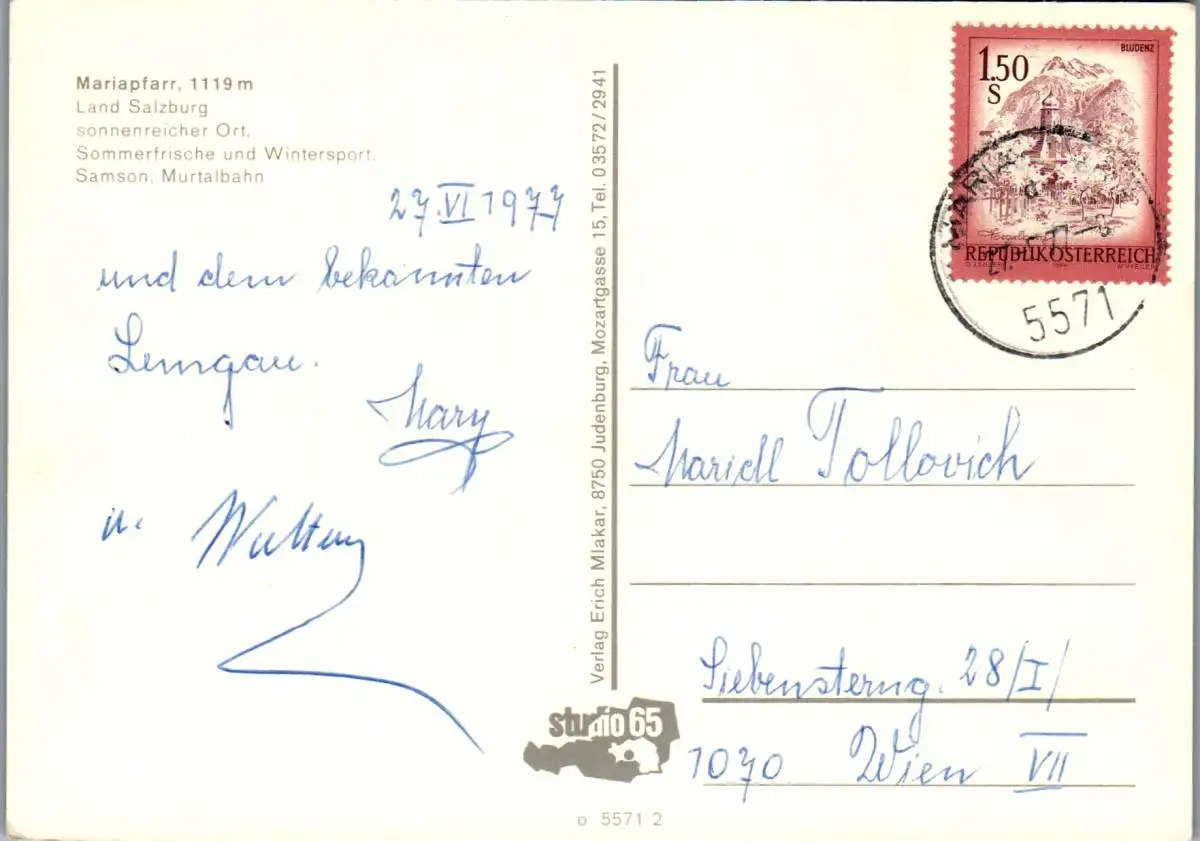 Mariapfarr, 1119 m
Land Salzburg
sonnenreicher Ort,
Sommerfrische und Wintersport.
Samson, Murtalbahn
27.VI 1977
und dem bekannten
Lungau.
Mary
u.
Verlag Erich Mlakar, 8750 Judenburg, Mozartgasse 15, Tel. 0 35 72 / 29 41
studio 65
o 5571 2
BLUDENZ
1.50
S
REPUBLIK ÖSTERREICH
5571
Frau
Maridl Tollovich
Siebensterng. 28/I/
1070 Wien VII